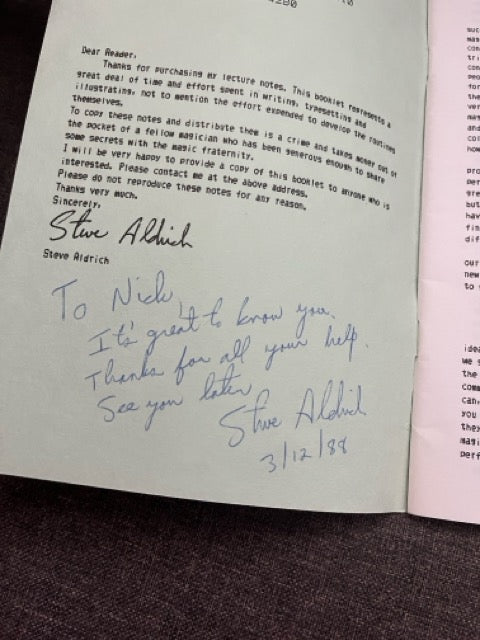 Dear Reader,
Thanks for purchasing my lecture notes. This booklet represents a
great deal of time and effort spent in writing, typesetting and
illustrating, not to mention the effort expended to develop the routines
themselves.
To copy these notes and distribute them is a crime and takes money out of
the pocket of a fellow magician who has been generous enough to share
some secrets with the magic fraternity.
I will be very happy to provide a copy of this booklet to anyone who is
interested. Please contact me at the above address.
Please do not reproduce these notes for any reason.
Thanks very much.
Sincerely,
Steve Aldrich
Steve Aldrich
To Nick,
It's great to know you.
Thanks for all your help.
See you later
Steve Aldrich
3/12/88